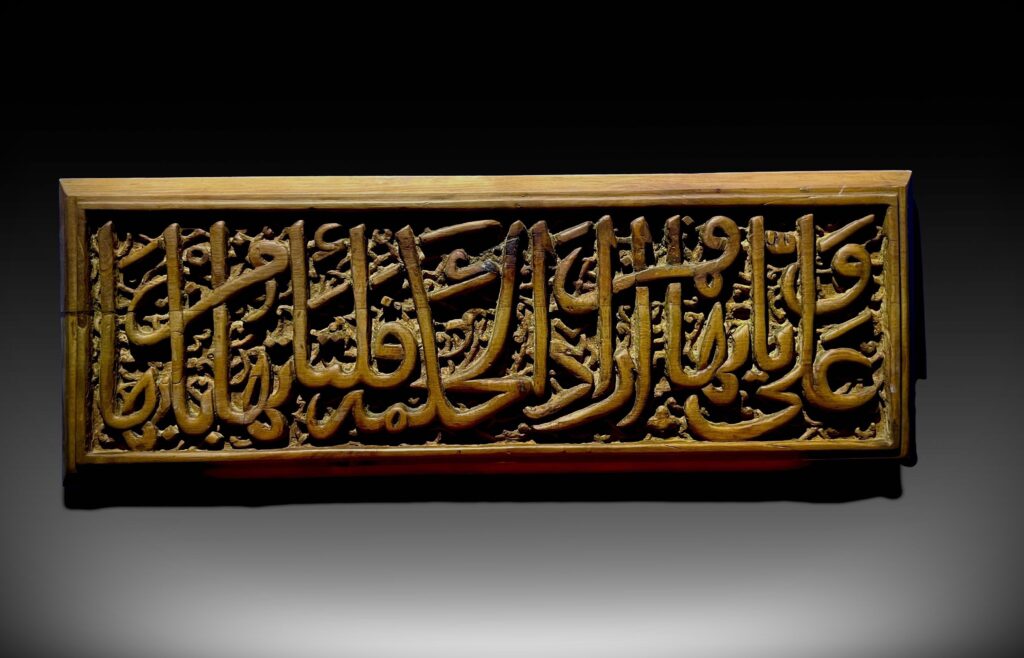 وعلي بابها فمن اراد الحكمه فلياتها من بابها